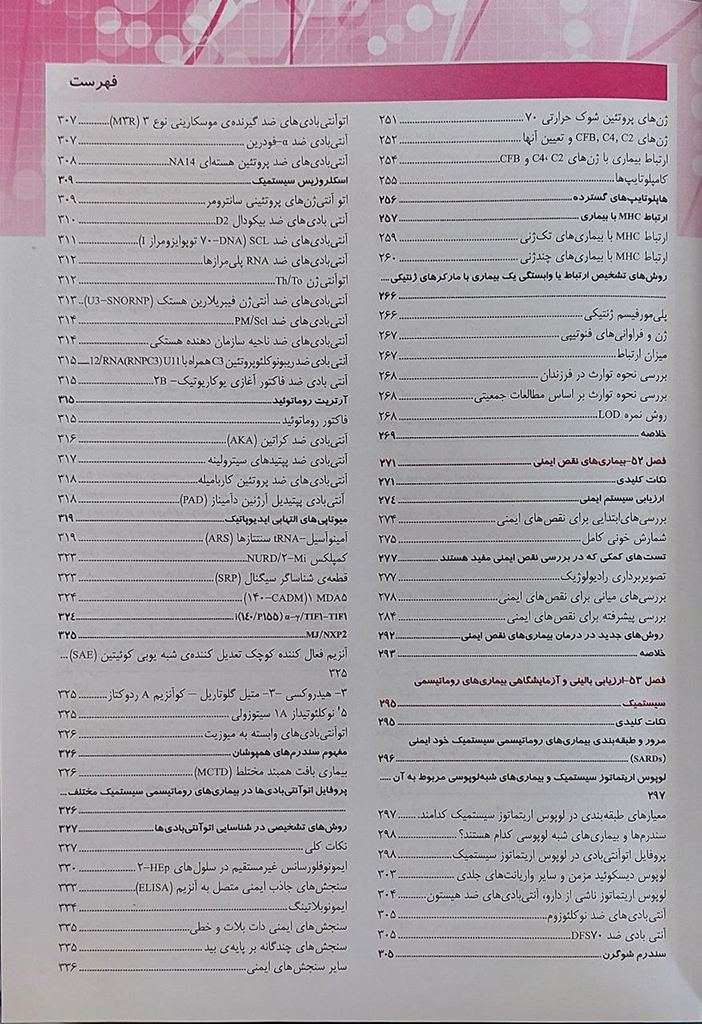 فهرست
ژن‌های پروتئین شوک حرارتی ۷۰ ...... ۲۵۱
ژن‌های CFB, C4, C2 و تعیین آنها ...... ۲۵۲
ارتباط بیماری با ژن‌های C4، C2 و CFB ...... ۲۵۴
کامپلوتایپ‌ها ...... ۲۵۵
هاپلوتایپ‌های گسترده ...... ۲۵۶
ارتباط MHC با بیماری ...... ۲۵۷
ارتباط MHC با بیماری‌های تک‌ژنی ...... ۲۵۹
ارتباط MHC با بیماری‌های چندژنی ...... ۲۶۰
روش‌های تشخیص ارتباط یا وابستگی یک بیماری با مارکرهای ژنتیکی ....
...... ۲۶۶
پلی‌مورفیسم ژنتیکی ...... ۲۶۶
ژن و فراوانی‌های فنوتیپی ...... ۲۶۷
میزان ارتباط ...... ۲۶۷
بررسی نحوه توارث در فرزندان ...... ۲۶۸
بررسی نحوه توارث بر اساس مطالعات جمعیتی ...... ۲۶۸
روش نمره LOD ...... ۲۶۸
خلاصه ...... ۲۶۹
فصل ۵۲-بیماری‌های نقص ایمنی ...... ۲۷۱
نکات کلیدی ...... ۲۷۱
ارزیابی سیستم ایمنی ...... ۲۷۴
بررسی‌های‌ابتدایی برای نقص‌های ایمنی ...... ۲۷۴
شمارش خونی کامل ...... ۲۷۵
تست‌های کمکی که در بررسی نقص ایمنی مفید هستند ...... ۲۷۷
تصویربرداری رادیولوژیک ...... ۲۷۷
بررسی‌های میانی برای نقص‌های ایمنی ...... ۲۷۸
بررسی پیشرفته برای نقص‌های ایمنی ...... ۲۸۴
روش‌های جدید در درمان بیماری‌های نقص ایمنی ...... ۲۹۲
خلاصه ...... ۲۹۳
فصل ۵۳-ارزیابی بالینی و آزمایشگاهی بیماری‌های روماتیسمی
سیستمیک ...... ۲۹۵
نکات کلیدی ...... ۲۹۵
مرور و طبقه‌بندی بیماری‌های روماتیسمی سیستمیک خود ایمنی
(SARDs) ...... ۲۹۶
لوپوس اریتماتوز سیستمیک و بیماری‌های شبه‌لوپوسی مربوط به آن ....
۲۹۷
معیارهای طبقه‌بندی در لوپوس اریتماتوز سیستمیک کدامند ...... ۲۹۷
سندرم‌ها و بیماری‌های شبه لوپوسی کدام هستند؟ ...... ۲۹۸
پروفایل اتوآنتی‌بادی در لوپوس اریتماتوز سیستمیک ...... ۲۹۸
لوپوس دیسکوئید مزمن و سایر واریانت‌های جلدی ...... ۳۰۳
لوپوس اریتماتوز ناشی از دارو، آنتی‌بادی‌های ضد هیستون ...... ۳۰۴
آنتی‌بادی‌های ضد نوکلئوزوم ...... ۳۰۵
آنتی بادی ضد DFS۷۰ ...... ۳۰۵
سندرم شوگرن ...... ۳۰۵
اتوآنتی‌بادی‌های ضد گیرنده‌ی موسکارینی نوع ۳ (M۳R) ...... ۳۰۷
آنتی‌بادی ضد α-فودرین ...... ۳۰۷
آنتی‌بادی‌های ضد پروتئین هسته‌ای NA14 ...... ۳۰۸
اسکلروزیس سیستمیک ...... ۳۰۹
اتو آنتی‌ژن‌های پروتئینی سانترومر ...... ۳۰۹
آنتی بادی‌های ضد بیکودال D2 ...... ۳۱۰
آنتی‌بادی‌های ضد SCL (۷۰-DNA توپوایزومراز I) ...... ۳۱۱
آنتی‌بادی‌های ضد RNA پلی‌مرازها ...... ۳۱۲
اتوآنتی‌ژن Th/To ...... ۳۱۲
آنتی‌بادی‌های ضد آنتی‌ژن فیبریلارین هستک (U3-SNORNP) .. ۳۱۳
آنتی‌بادی‌های ضد PM/Scl ...... ۳۱۴
آنتی‌بادی‌های ضد ناحیه سازمان دهنده هستکی ...... ۳۱۴
آنتی بادی ضد ریبونوکلئوپروتئین C3 همراه با 12/RNA(RNPC3) U11 ...... ۳۱۵
آنتی بادی ضد فاکتور آغازی یوکاریوتیک- ۲B ...... ۳۱۵
آرتریت روماتوئید ...... ۳۱۵
فاکتور روماتوئید ...... ۳۱۵
آنتی‌بادی ضد کراتین (AKA) ...... ۳۱۶
آنتی‌بادی ضد پپتیدهای سیترولینه ...... ۳۱۷
آنتی‌بادی ضد پروتئین کاربامیله ...... ۳۱۸
آنتی‌بادی پپتیدیل آرژنین دآمیناز (PAD) ...... ۳۱۸
میوپاتی‌های التهابی ایدیوپاتیک ...... ۳۱۹
آمینوآسیل-tRNA سنتتازها (ARS) ...... ۳۱۹
کمپلکس NURD/۲-Mi ...... ۳۲۳
قطعه‌ی شناساگر سیگنال (SRP) ...... ۳۲۳
(۱۴۰-CADM) ۱ MDA۵ ...... ۳۲۴
i(۱٤۰/P۱۵۵) α-γ/TIF۱-TIF۱ ...... ۳۲٤
MJ/NXP2 ...... ۳۲۵
آنزیم فعال کننده کوچک تعدیل کننده‌ی شبه یوبی کوئیتین (SAE) ...
۳۲۵
۳- هیدروکسی -۳- متیل گلوتاریل – کوآنزیم A ردوکتاز ...... ۳۲۵
۵' نوکلئوتیداز ۱A سیتوزولی ...... ۳۲۵
اتوآنتی‌بادی‌های وابسته به میوزیت ...... ۳۲۶
مفهوم سندرم‌های همپوشان ...... ۳۲۶
بیماری بافت همبند مختلط (MCTD) ...... ۳۲۶
پروفایل اتوآنتی‌بادی‌ها در بیماری‌های روماتیسمی سیستمیک مختلف ...
...... ۳۲۶
روش‌های تشخیصی در شناسایی اتوآنتی‌بادی‌ها ...... ۳۲۷
نکات کلی ...... ۳۲۷
ایمونوفلورسانس غیرمستقیم در سلول‌های ۲-HEp ...... ۳۳۰
سنجش‌های جاذب ایمنی متصل به آنزیم (ELISA) ...... ۳۳۳
ایمونوبلاتینگ ...... ۳۳۴
سنجش‌های ایمنی دات بلات و خطی ...... ۳۳۵
سنجش‌های چندگانه بر پایه‌ی بید ...... ۳۳۵
سایر سنجش‌های ایمنی ...... ۳۳۶